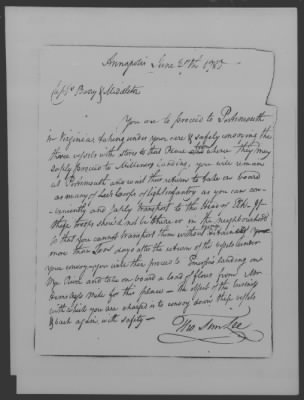 Annapolis June 27th 178
Capts Bary & Middleton
You are to proceed to Portsmouth
in Virginia taking under your care & safely convoying the
three vessels with Stores to that place where they may
safely proceed to Landing, you will remain
at Portsmouth and wait their return to take on board
as many of Corps of Light Infantry as you can con-
veniently and safely transport to the Head of Elk. If
these troops should not be there or in the neighbourhood
so that you cannot transport them without detaining you
more than days after the return of the vessels under
your convoy you will then proceed to landing on
River and take on board a load of flour from
for this place — the object of the business
with which you are charged is to convoy down these vessels
& back again with safety —
Tho Sim Lee